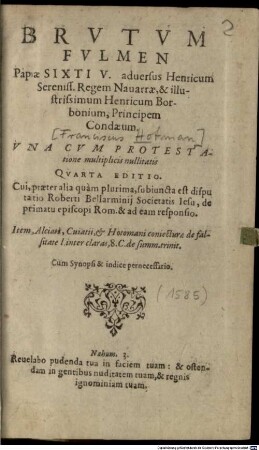 2
BRVTVM
FVLMEN
Papæ SIXTI V. aduersus Henricum
Sereniss. Regem Nauarræ, & illu-
strissimum Henricum Bor-
bonium, Principem
Condæum.
[Franciscus Hotman]
VNA CVM PROTESTA-
tione multiplicis nullitatis
QVARTA EDITIO.
Cui, præter alia quàm plurima, subiuncta est dispu
tatio Roberti Bellarminij Societatis Iesu, de
primatu episcopi Rom. & ad eam responsio.
Item, Alciati, Cuiatii, & Hotomani coniecturæ de fal-
sitate l. inter claras, 8. C. de summ. trinit.
Cum Synopsi & indice pernecessario.
(1585)
Nahum. 3.
Reuelabo pudenda tua in faciem tuam: & osten-
dam in gentibus nuditatem tuam, & regnis
ignominiam tuam.